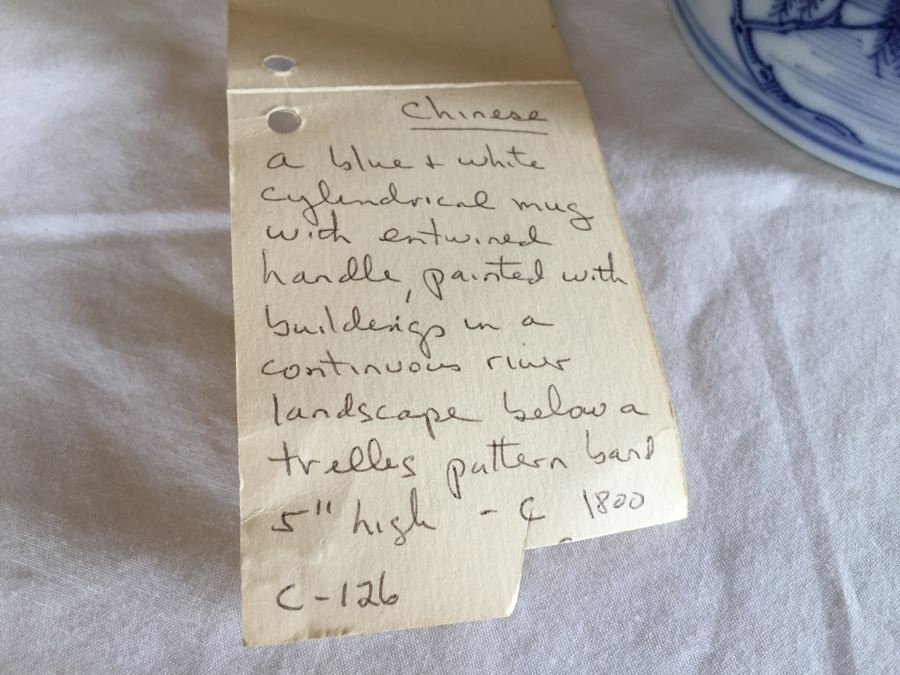 Chinese
a blue + white
cylindrical mug
with entwined
handle, painted with
buildings in a
continuous river
landscape below a
trelles pattern band
5" high - C 1800
C-126